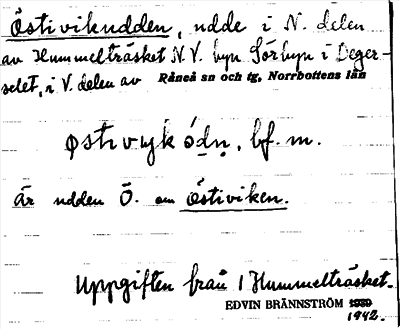 Östivikudden, udde i N. delen
av Hummelträsket N.V. byn Sörbyn i Deger-
selet, i V. delen av Råneå sn och tg, Norrbottens län
østivyk ódn̥, bf. m.
Är udden Ö. om Östiviken.
Uppgiften från 1 Hummelträsket.
EDVIN BRÄNNSTRÖM 1939
1942.